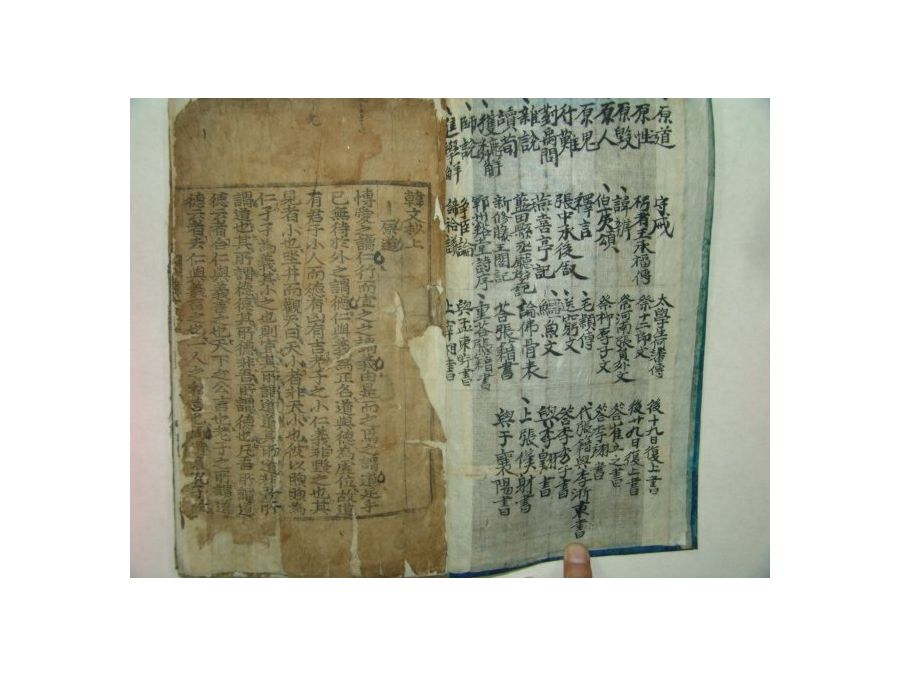 原道
原性
原毀
原人
原鬼
行難
對禹問
雜說
讀荀
獲麟解
師說
進學解
守戒
圬者王承福傳
諱辨
伯夷頌
釋言
張中丞後敘
燕喜亭記
藍田縣丞廳壁記
新修滕王閣記
鄆州谿堂詩序
爭臣論
禘祫議
太學生何蕃傳
祭十二郎文
祭河南張員外文
祭柳子厚文
毛穎傳
送窮文
鱷魚文
論佛骨表
答張籍書
重答張籍書
與孟東野書
上宰相書
後十九日復上書
後廿九日復上書
答崔立之書
答李翊書
代張籍與李浙東書
答李秀才書
與李翱書
上張僕射書
與于襄陽書
韓文抄上
原道
博愛之謂仁行而宜之之謂義由是而之焉之謂道足乎
已無待於外之謂德仁與義爲定名道與德爲虛位故道
有君子小人而德有凶有吉老子之小仁義非毀之也其
見者小也坐井而觀天曰天小者非天小也彼以煦煦爲
仁孑孑爲義其小之也則宜其所謂道道其所道非吾所
謂道也其所謂德德其所德非吾所謂德也凡吾所謂道
德云者合仁與義言之也天下之公言也老子之所謂道
德云者去仁與義言之也一人之私言也